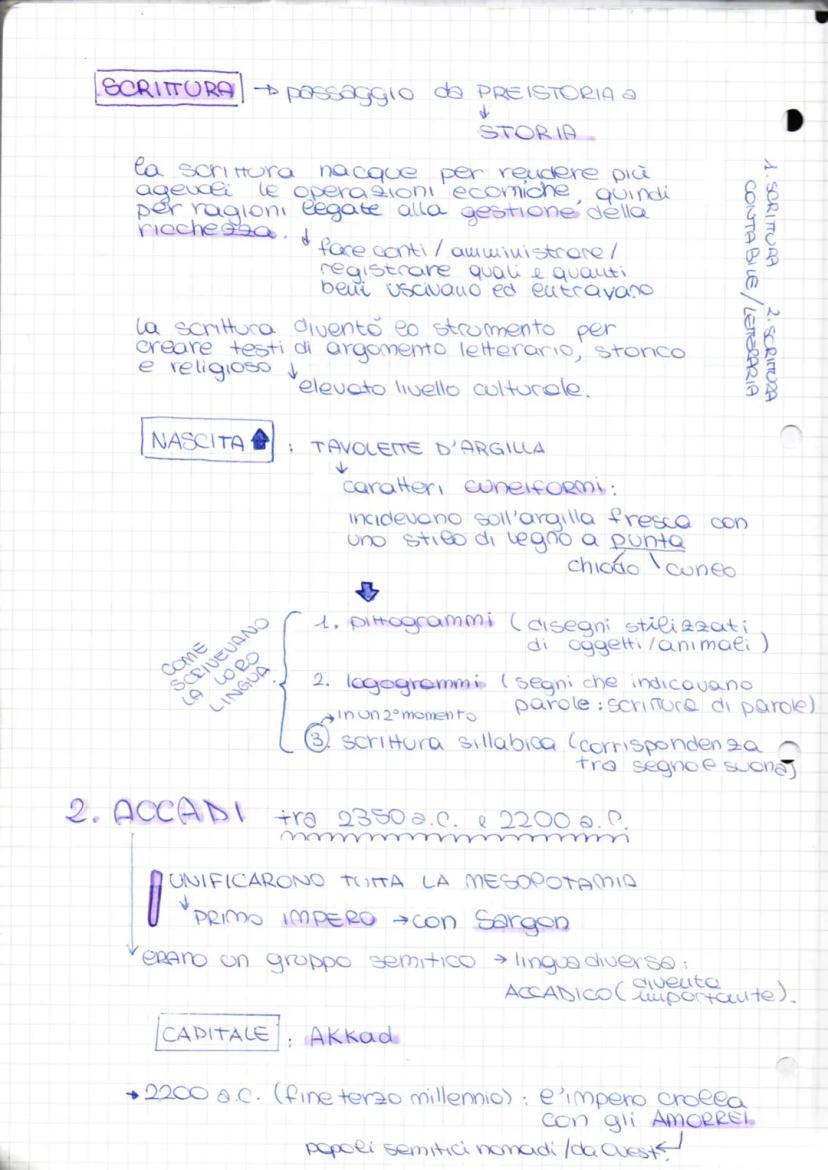 SCRITTURA → passaggio da PREISTORIA a
↓
STORIA
la scrittura nacque per rendere più
agevoli le operazioni ecomiche, quindi
per ragioni legate alla gestione della
ricchezza. ↓
fare conti / amministrare /
registrare quali e quanti
beni uscivano ed entravano
1. SCRITTURA 2. SCRITTURA
CONTABILE / LETTERARIA
la scrittura diventò lo strumento per
creare testi di argomento letterario, storico
e religioso ↓
elevato livello culturale.
NASCITA ⬆ : TAVOLETTE D'ARGILLA
↓
caratteri cuneiformi:
incidevano sull'argilla fresca con
uno stilo di legno a punta
chiodo \ cuneo
⬇
COME
SCRIVEVANO
LA LORO
LINGUA
1. pittogrammi (disegni stilizzati
di oggetti/animali)
2. logogrammi (segni che indicavano
parole: scrittura di parole)
→ in un 2° momento
3. scrittura sillabica (corrispondenza
tra segno e suono)
2. ACCADI tra 2350 a.C. e 2200 a.C.
UNIFICARONO TUTTA LA MESOPOTAMIA
↓ PRIMO IMPERO → con Sargon
ERANO un gruppo semitico → lingua diversa:
ACCADICO (diventa
importante).
CAPITALE : AKKad
→ 2200 a.C. (fine terzo millennio): l'impero crolla
con gli AMORREI
popoli semitici nomadi /da Ovest ↵